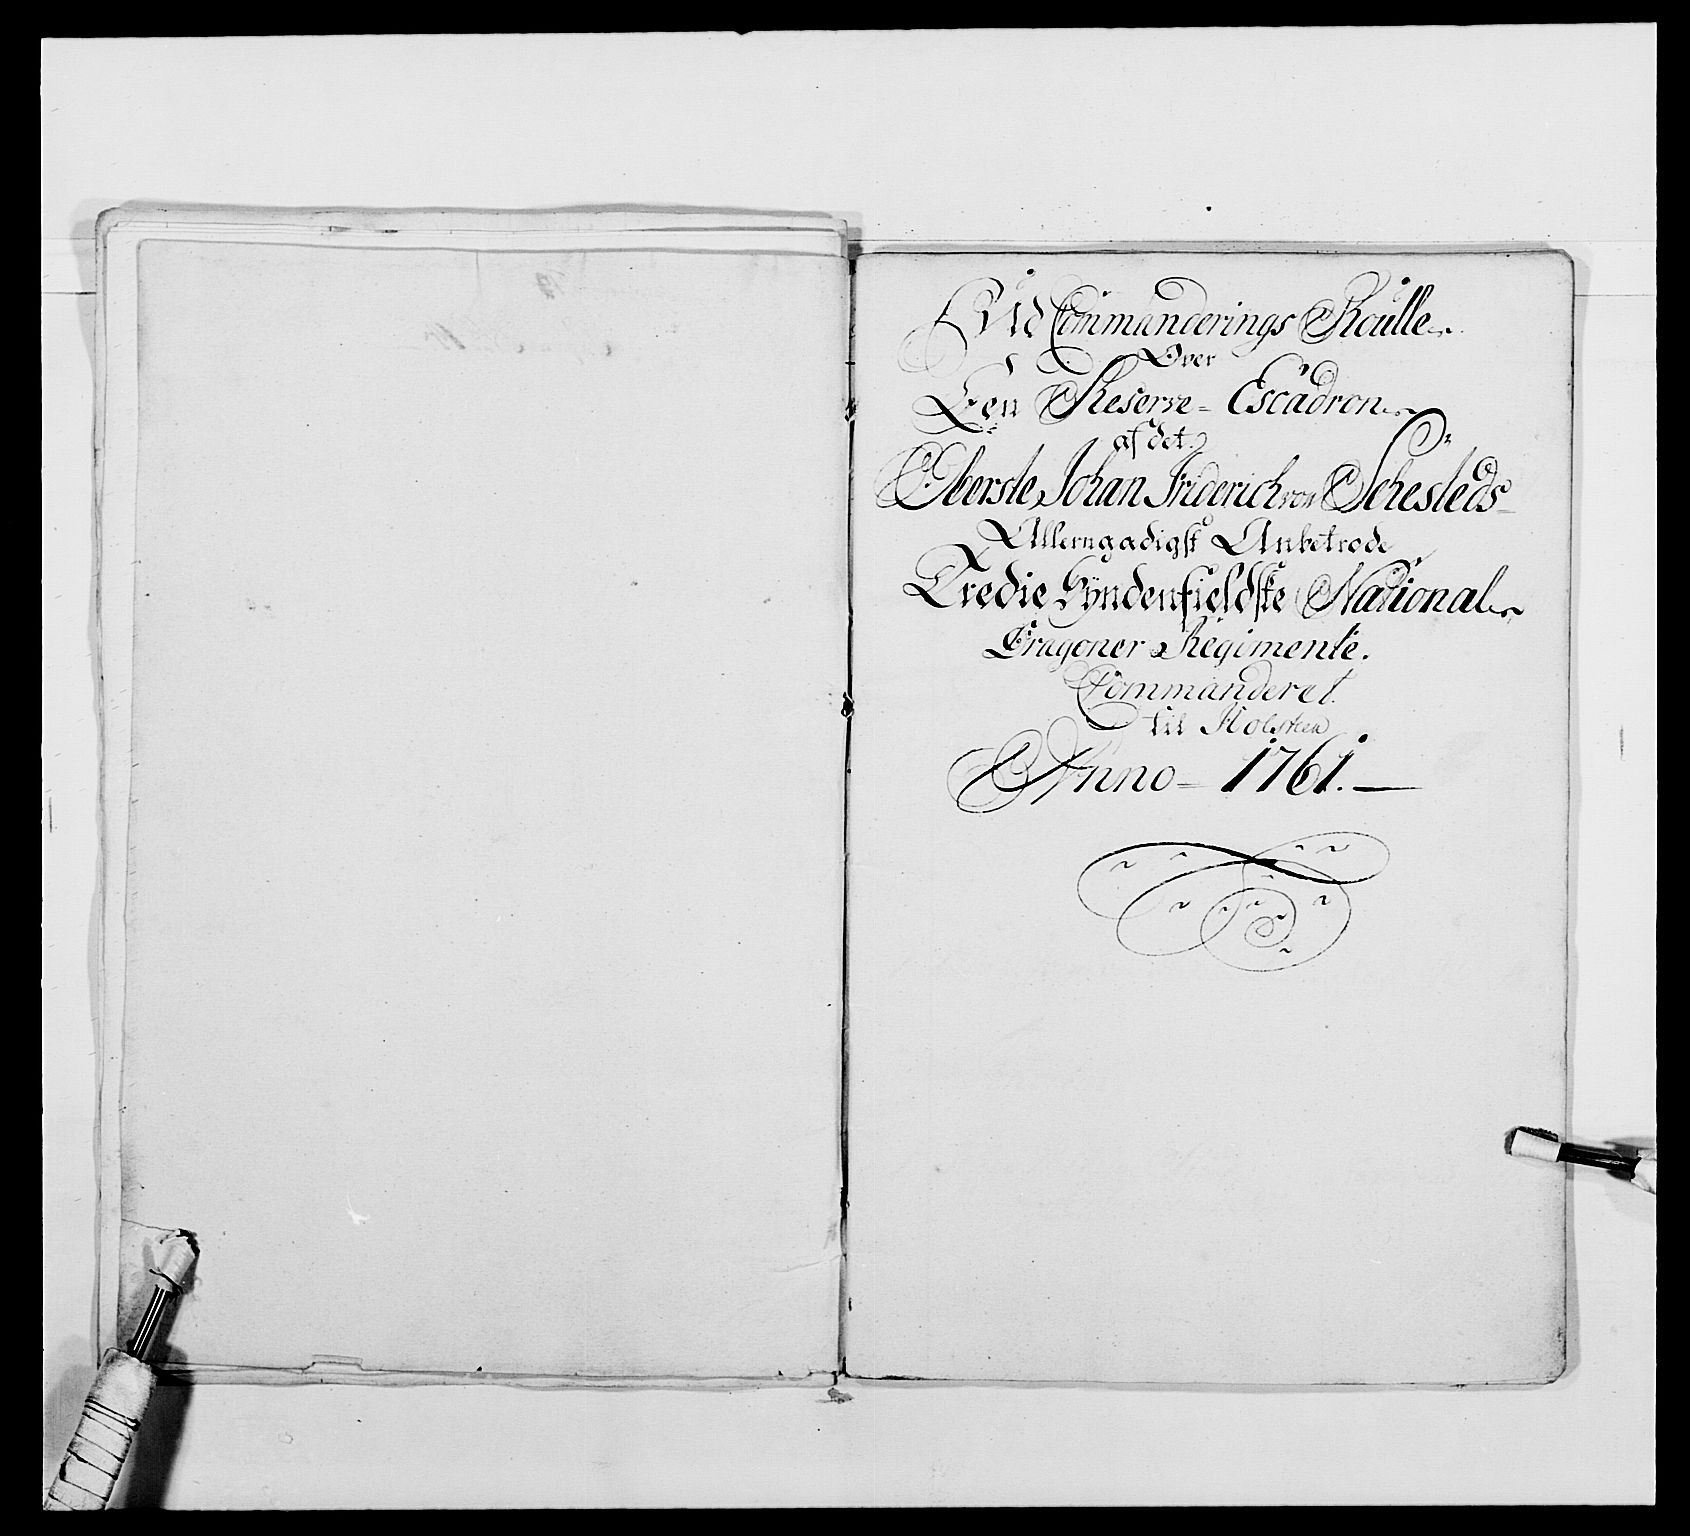 Ud Commanderings Roulle
Over
Een Reserve= Escadron
af det
Oberste Johan Friderich von Schesteds
Allerngadigst Anbetrode
Tredie Syndenfieldske National
Dragoner Regimente.
Commanderet
til Holsten
Anno = 1761.